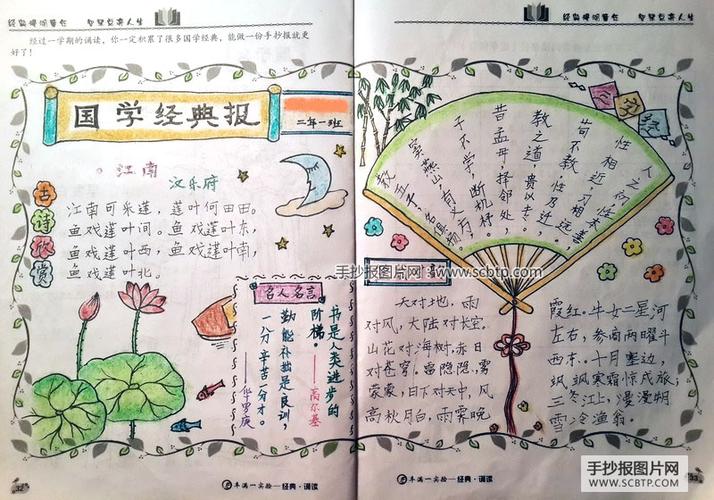 智慧点亮人生
经过一学期的诵读，你一定积累了很多国学经典，能做一份手抄报就更
好了！
国学经典报
二年一班
江南
汉乐府
古诗欣赏
江南可采莲，莲叶何田田。
鱼戏莲叶间。鱼戏莲叶东，
鱼戏莲叶西，鱼戏莲叶南，
鱼戏莲叶北。
名人名言
书是人类进步的
阶梯。——高尔基
勤能补拙是良训，
一分辛苦一分才。
——华罗庚
32
丰满一实验—经典·诵读
智慧点亮人生
人之初，性本善
性相近，习相远
苟不教，性乃迁
教之道，贵以专
昔孟母，择邻处
子不学，断机杼
窦燕山，有义方
教五子，名俱扬
手抄报图片网 www.scbtp.com
天对地，雨
对风，大陆对长空。
山花对海树，赤日
对苍穹。雷隐隐，雾
蒙蒙，日下对天中，风
高秋月白，雨霁晚
霞红。牛女二星河
左右，参商两曜斗
西东。十月塞边，
飒飒寒霜惊戍旅；
三冬江上，漫漫朔
雪冷渔翁。
丰满一实验—经典·诵读
33
手抄报图片网
SCBTP.COM